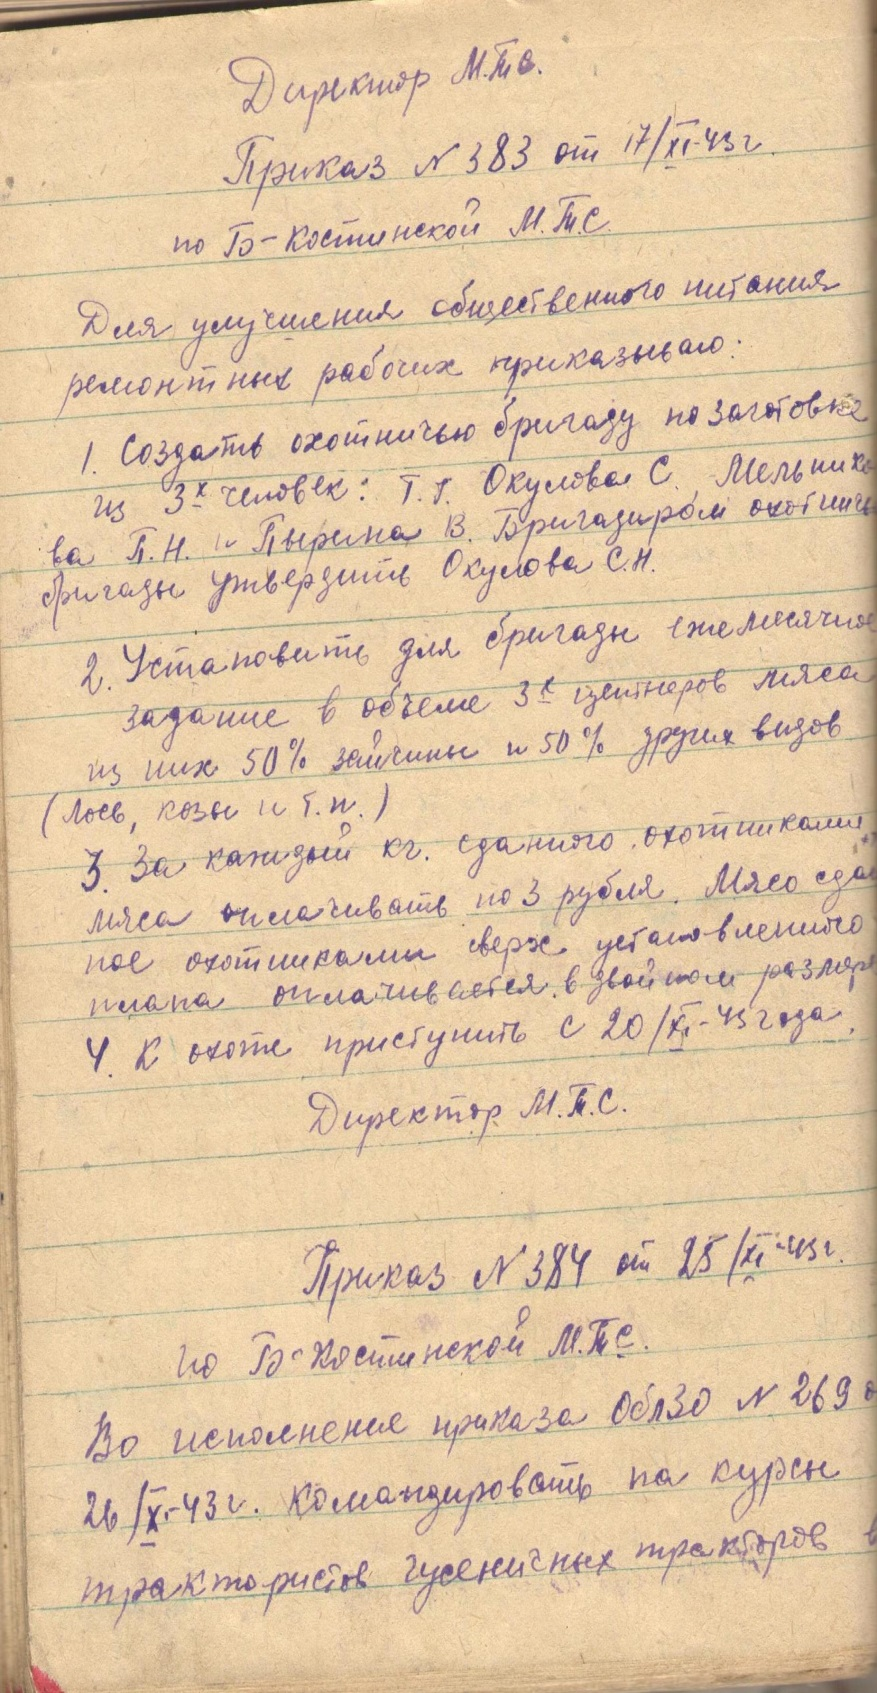 Директор М.Т.С.
Приказ № 383 от 17/XI-43 г.
по Б-Костинской М.Т.С.
Для улучшения общественного питания
ремонтных рабочих приказываю:
1. Создать охотничью бригаду по заготовке
из 3х человек: т.т. Окулова С. Мельнико
ва П.Н. и Пырина В. Бригадиром охотничь
бригады утвердить Окулова С.Н.
2. Установить для бригады ежемесячное
задание в объеме 3х центнеров мяса
из них 50% зайчины и 50% других видов
(лось, козы и т.п.)
3. За каждый кг. сданного охотниками
мяса оплачивать по 3 рубля. Мясо сдан
ное охотниками сверх установленного
плана оплачивается в двойном размере
4. К охоте приступить с 20/XI-43 года.
Директор М.Т.С.
Приказ № 384 от 25/XI-43 г.
по Б-Костинской М.Т.С.
Во исполнение приказа ОблЗО № 269 о
26/XI-43 г. командировать на курсы
трактористов гусеничных тракторов в